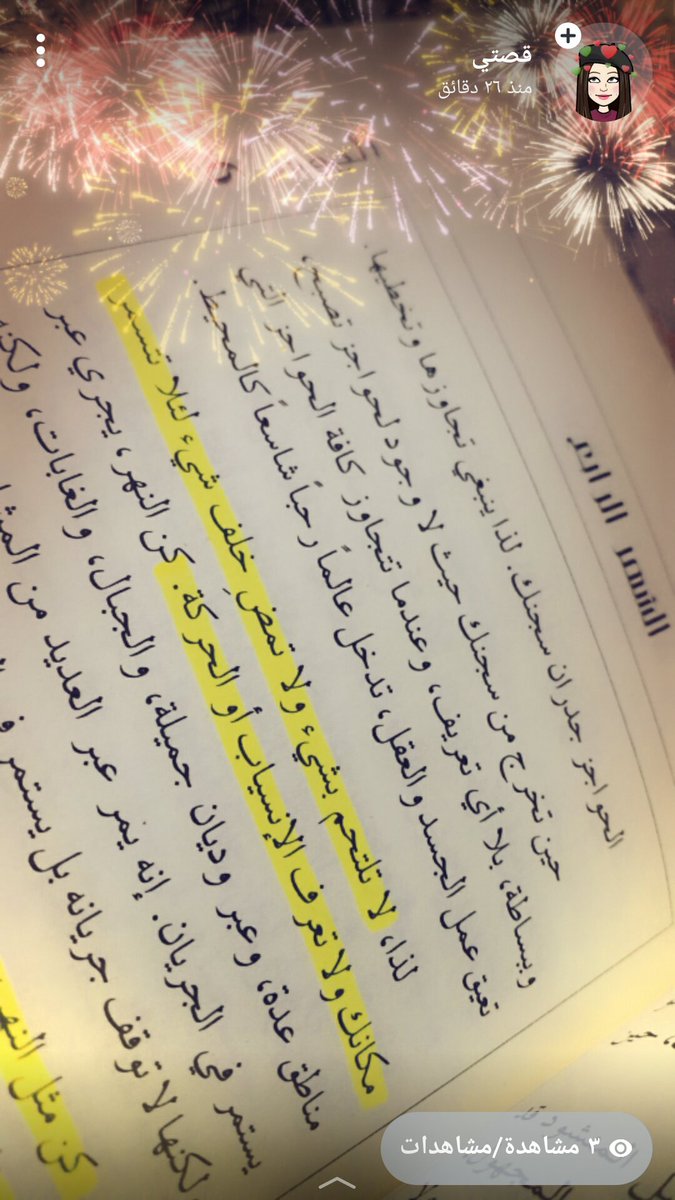 قصتي
منذ ٢٦ دقائق
الشهر الرابع
الحواجز جدران سجنك. لذا ينبغي تجاوزها وتخطيها.
حين تخرج من سجنك حيث لا وجود لحواجز تصبح
وببساطة، بلا أي تعريف، وعندما تتجاوز كافة الحواجز التي
تعيق عمل الجسد والعقل، تدخل عالماً رحباً شاسعاً كالمحيط.
لذا، لا تلتحم بشيء ولا تمضِ خلف شيء لئلا
مكانك ولا تعرف الإنسياب أو الحركة. كن النهر، يجري عبر
مناطق عدة، وعبر وديان جميلة، والجبال، والغابات، ولكنه
يستمر في الجريان. إنه يمر عبر العديد من
لكنها لا توقف جريانه بل يستمر
كن مثل النهر
٣ مشاهدة/مشاهدات